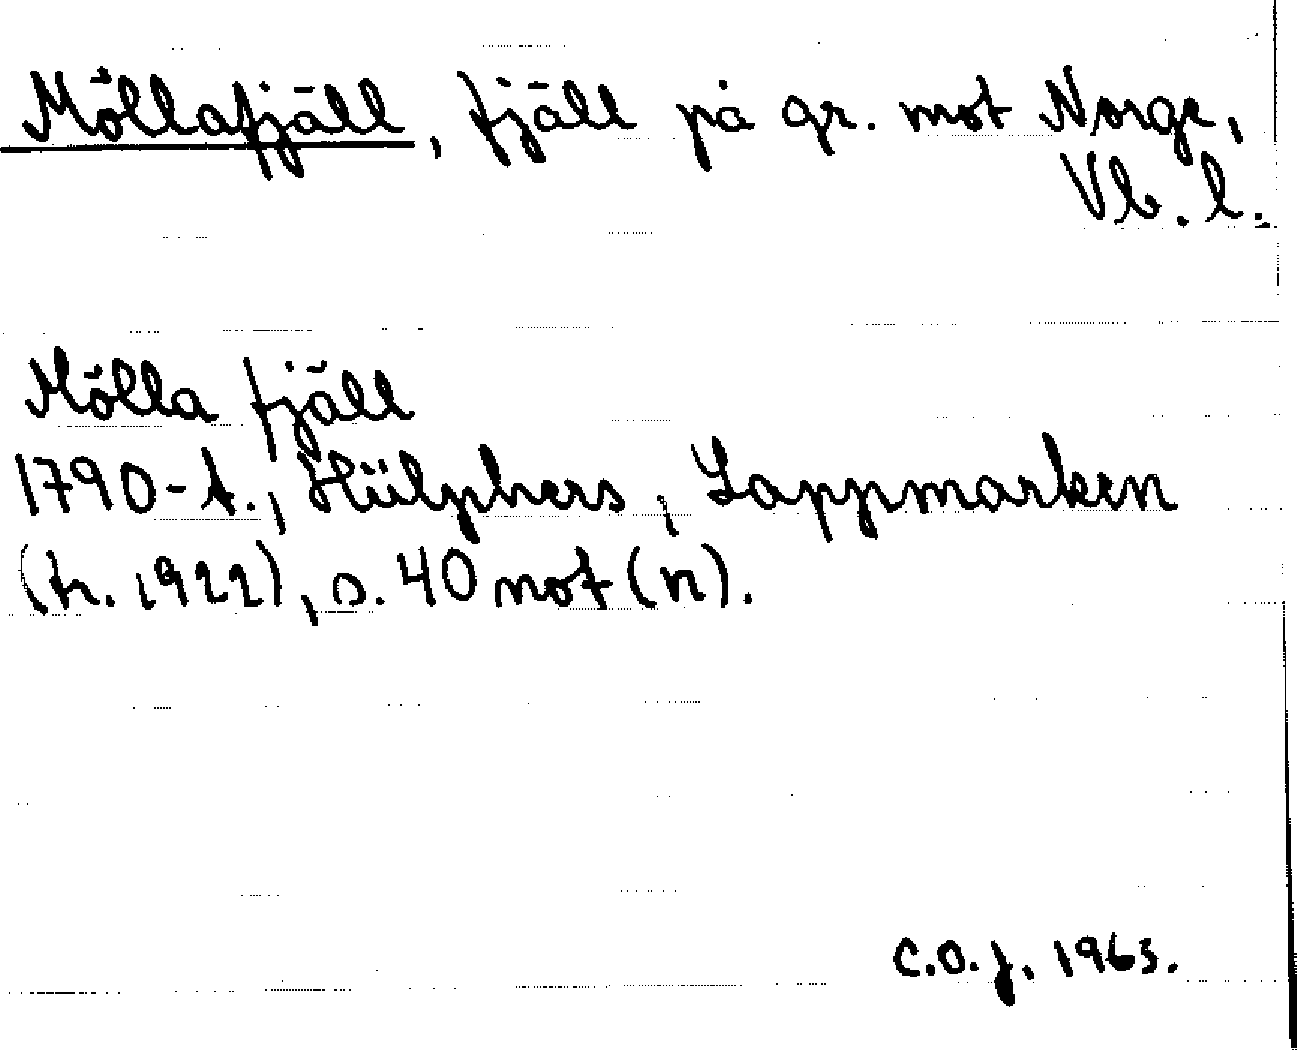 Möllafjäll, fjäll på gr. mot Norge,
Vb. l.
Mölla fjäll
1790-t., Hülphers, Lappmarken
(tr. 1922), s. 40 not (n).
C.O.J. 1963.